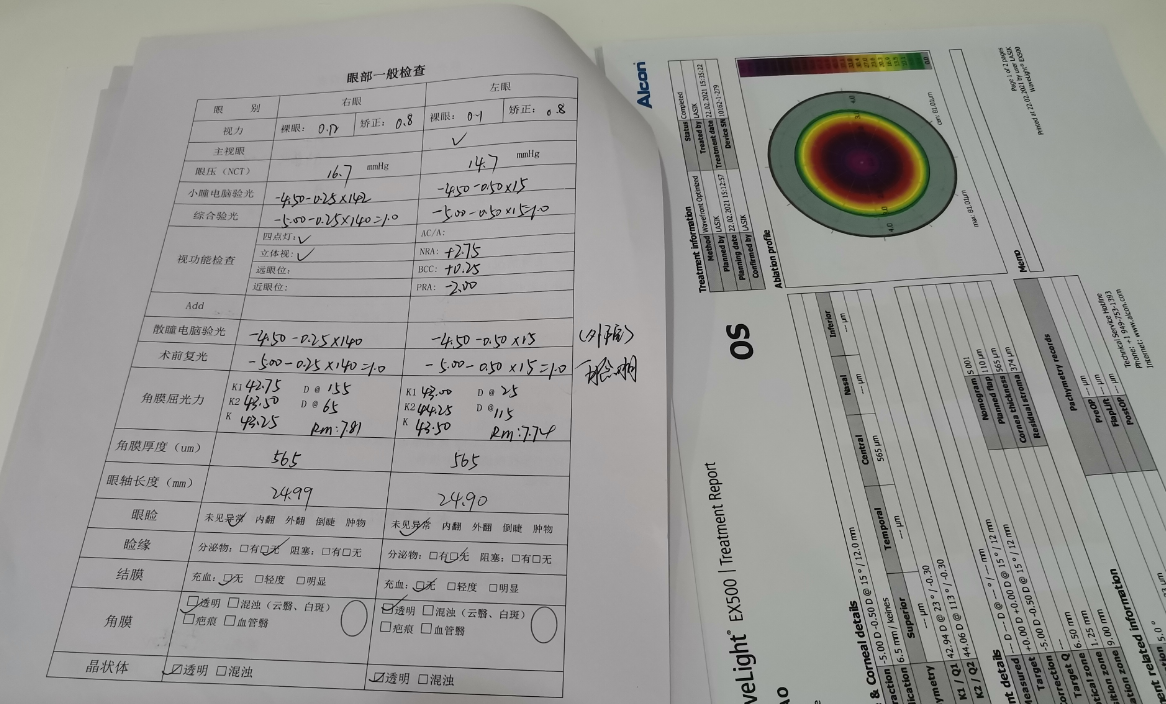 眼部一般检查
眼 别 右眼 左眼
视力 裸眼: 矫正: 0.8 裸眼: 0.1 矫正: 0.8
主视眼 ✓
眼压 (NCT) 16.7 mmHg 14.7 mmHg
小瞳电脑验光 -4.50-0.25×142 -4.50-0.50×15
综合验光 -5.00-0.25×140=1.0 -5.00-0.50×15=1.0
视功能检查 四点灯: ✓ AC/A:
立体视: ✓ NRA: +2.75
远眼位: BCC: +0.25
近眼位: PRA: -2.00
Add
散瞳电脑验光 -4.50-0.25×140 -4.50-0.50×15
术前复光 -5.00-0.25×140=1.0 -5.00-0.50×15=1.0
角膜屈光力 K1 42.75 D@ 155 K1 43.00 D@ 25
K2 43.50 D@ 65 K2 44.25 D@ 115
K 43.25 Rm:7.81 K 43.50 Rm:7.74
角膜厚度 (um) 565 565
眼轴长度 (mm) 24.99 24.90
眼睑 未见异常 内翻 外翻 倒睫 肿物 未见异常 内翻 外翻 倒睫 肿物
睑缘 分泌物: □有□无 阻塞: □有□无 分泌物: □有□无 阻塞: □有□无
结膜 充血: □无 □轻度 □明显 充血: □无 □轻度 □明显
角膜 □透明 □混浊 (云翳、白斑) □透明 □混浊 (云翳、白斑)
□疤痕 □血管翳 □疤痕 □血管翳
晶状体 ☑透明 □混浊 ☑透明 □混浊
Alcon
OS
veLight® EX500 | Treatment Report
Treatment information
Status Completed
Treated by LASIK
Treatment date 22.02.2021 15:35:22
Device SN 10162-1-279
Method Wavefront Optimized
Planned by LASIK
Planning date 22.02.2021 15:12:57
Confirmed by LASIK
Ablation profile
max. 81.01µm
cen. 81.01µm
Memo
Page 1 of 2 pages
Printed at 22.02.2021 by user LASIK
WaveLight® EX500
& Corneal details
raction -5.00 D -0.50 D @ 15 ° / 12.0 mm
6.5 mm / keines
Superior Temporal Central Nasal Inferior
--- µm --- µm 565 µm --- µm --- µm
K1 / Q1 42.94 D @ 23 ° / -0.30
K2 / Q2 44.06 D @ 113 ° / -0.30
nt details
--- D --- D @ --- ° / --- mm
Measured +0.00 D +0.00 D @ 15 ° / 12 mm
Target -5.00 D -0.50 D @ 15 ° / 12 mm
Correction
Target Q ---
6.50 mm
1.25 mm
9.00 mm
Nomogram 5.001
Planned flap 110 µm
Cornea thickness 565 µm
Residual stroma 374 µm
Pachymetry records
PreOP --- µm
FlapLift --- µm
PostOP --- µm
Technical Service Hotline
Phone: +1 949-753-1393
Internet: www.alcon.com
ent related information